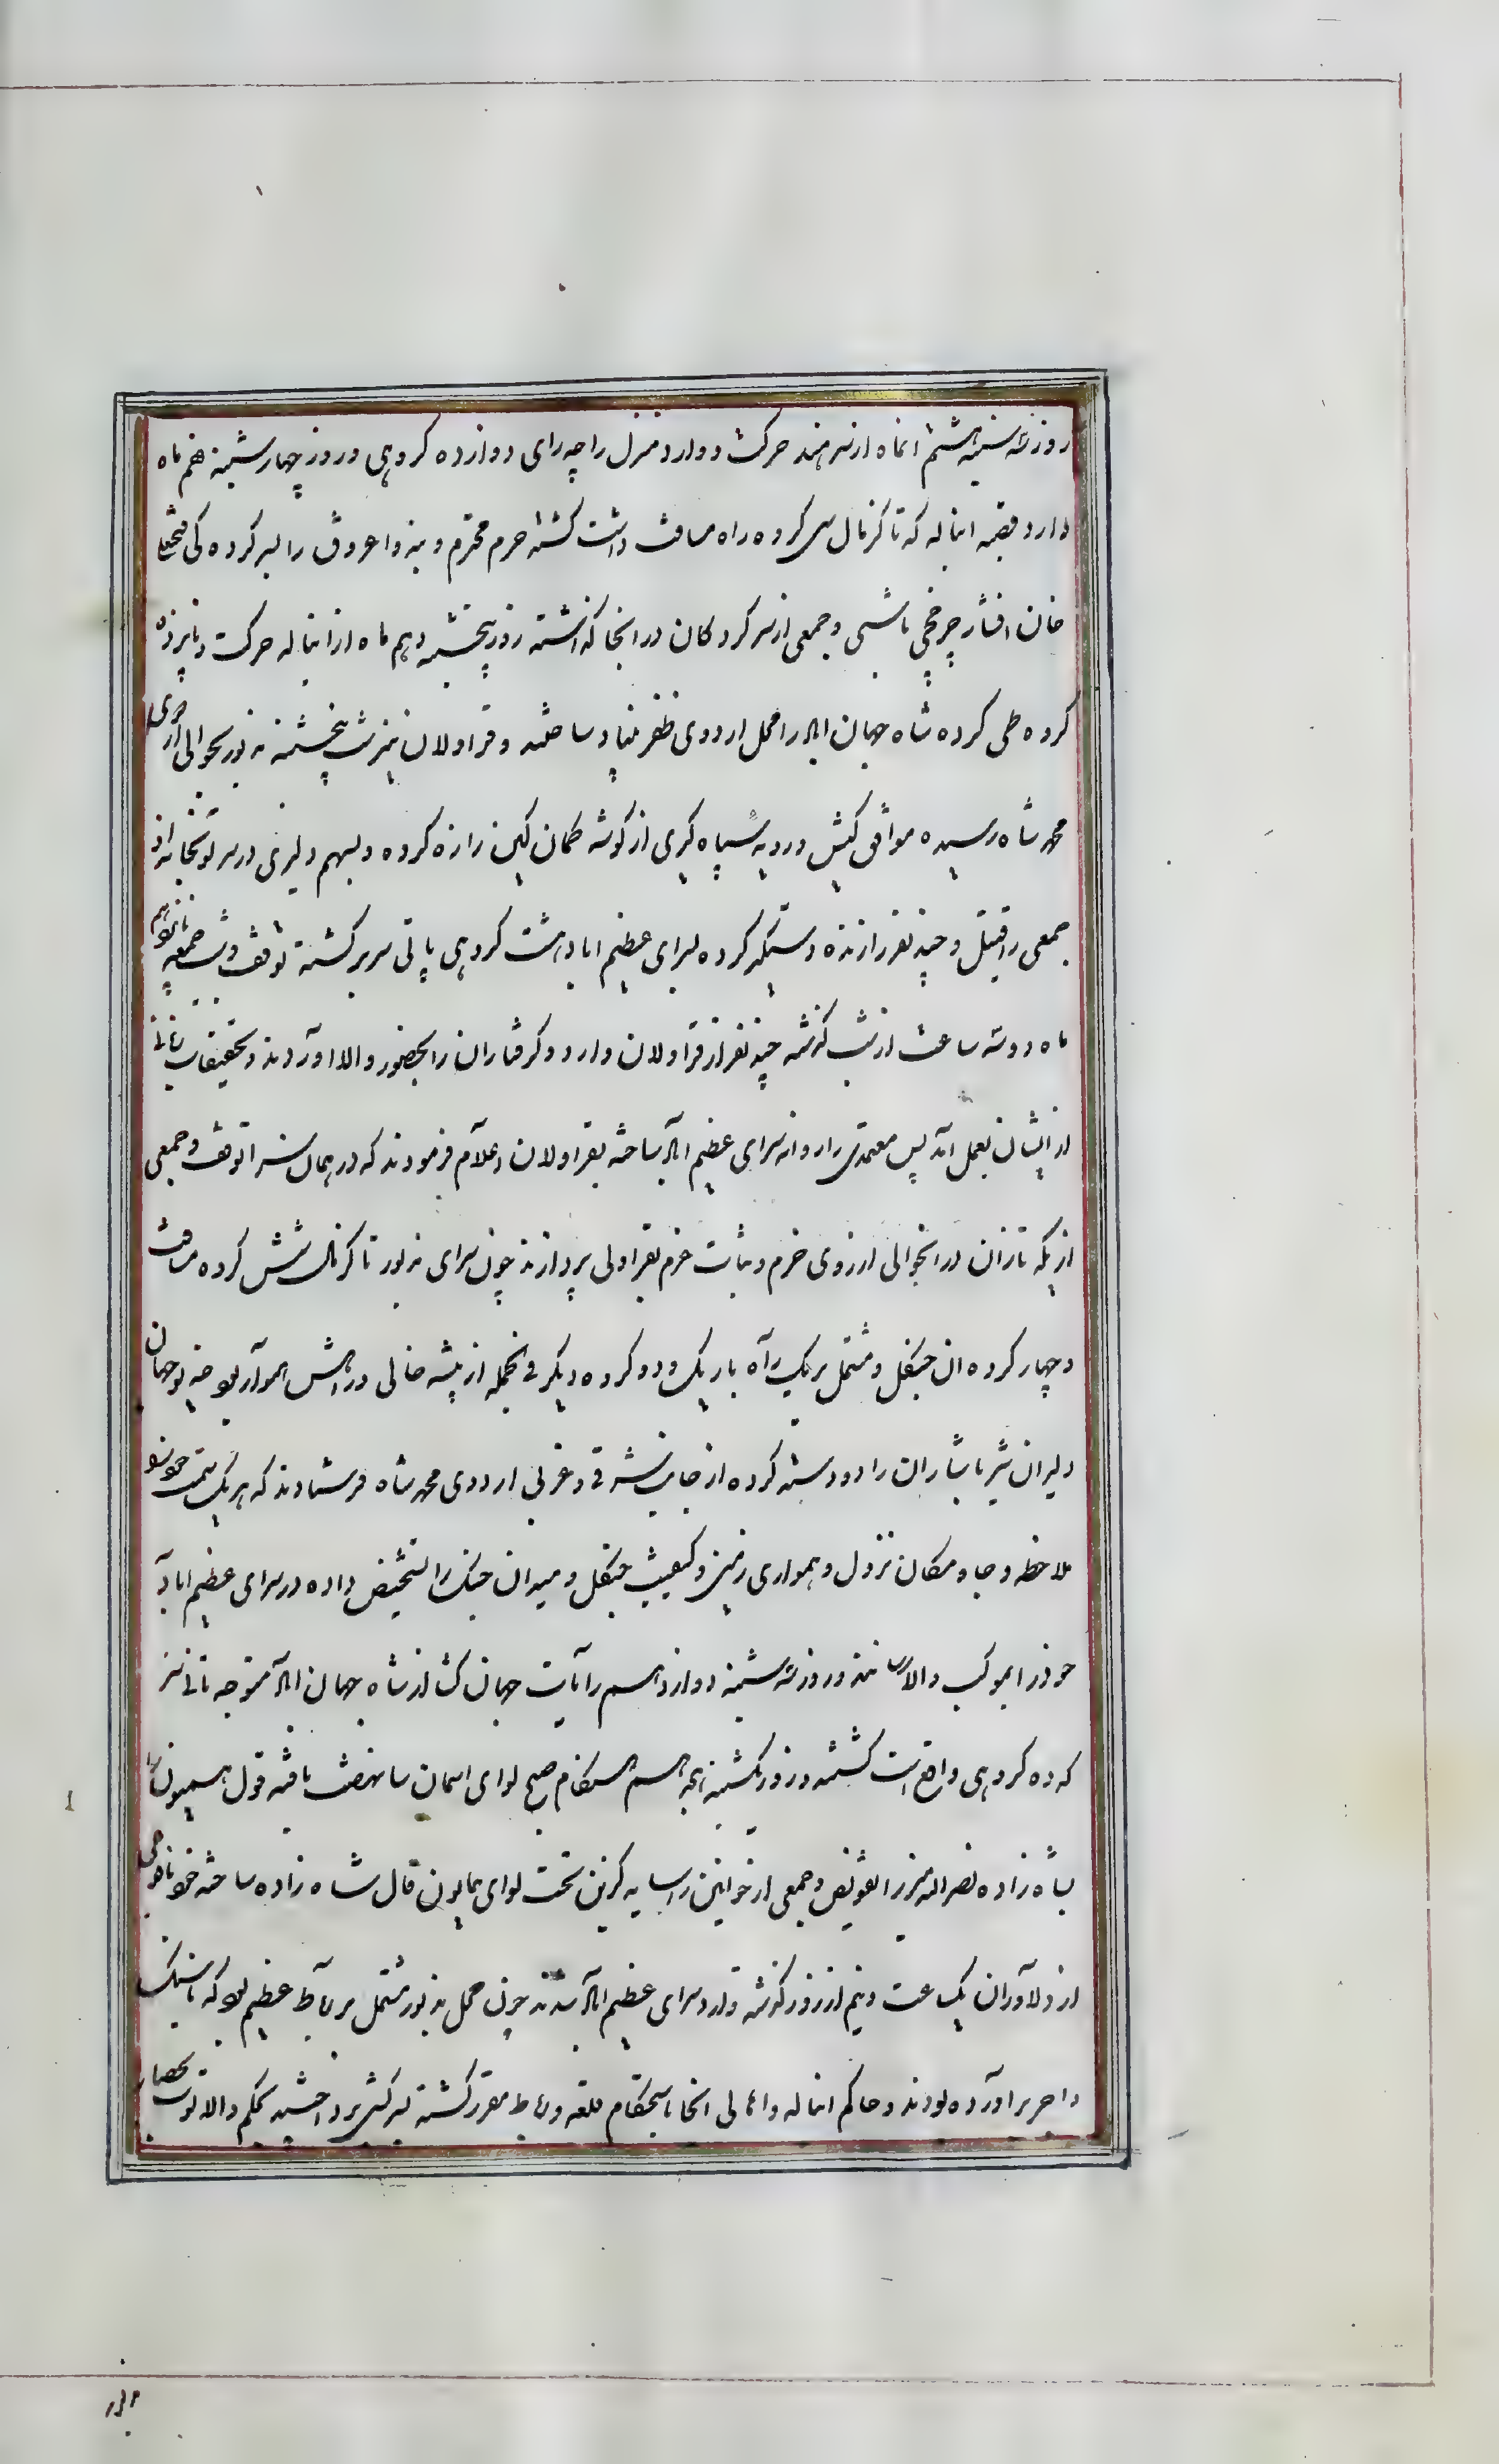 روز سه شنبه هشتم انماه از سرهند حرکت و وارد منزل راجه رای دوازده کروهی و روز چهارشنبه نهم ماه
وارد قصبه انباله که تا کرنال سی کروه راه مسافت داشت کشته حرم محترم و بنه و اغروق را بسر کرده کی فتحعلی
خان افشار چرخچی باشی و جمعی از سر کردکان در انجا کذاشته روز پنجشنبه دهم ماه از انباله حرکت و پانزده
کروه طی کرده شاه جهان اباد را محل اردوی ظفر بنیاد ساختند و قراولان نیز شب پنجشنبه مزبور بحوالی اردوی
محمد شاه رسیده موافق کیش و رویه سپاه کیری از کوشه کمان کین را زه کرده و بسهم دلیری در سر توپخانه او
جمعی را قتیل و چند نفر را زنده دستکیر کرده بسرای عظیم اباد هشت کروهی پانی پت برکشته توقف و شب جمعه یازدهم
ماه دو سه ساعت از شب کذشته چند نفر از قراولان وارد و کرفتاران را بحضور والا اوردند و تحقیقات زبانی
از ایشان بعمل امد پس معتمدی را روانه سرای عظیم اباد ساخته بقراولان اعلام فرمودند که در همان سرا توقف و جمعی
از یکه تازان در انحوالی از روی حزم و ثبات عزم بقراولی پردازند چون سرای مزبور تا کرنال شش کروه مسافت
و چهار کروه ان جنکل و مشتمل بر یک راه باریک و دو کروه دیکر فی الجمله از بیشه خالی و راهش هموار بود خدیو جهان
دلیران شیر شاران را دو دسته کرده از جانب شرقی و غربی اردوی محمد شاه فرستادند که هر یک سمت خود را
ملاحظه و جا و مکان نزول و همواری زمین و کیفیت جنکل و میدان جنک را تشخیص داده در سرای عظیم اباد
خود را بموکب والا رسانند و روز سه شنبه دوازدهم رایات جهان کشا از شاه جهان اباد متوجه تانیسر
که ده کروهی واقع است کشته و روز یکشنبه سیزدهم هنکام صبح لوای اسمان سا نهضت یافته قول همیون را
بشاه زاده نصرالله میرزا تفویض و جمعی از خوانین را سایه کزین تحت لوای همایون فال شاه زاده ساخته خود با فوجی
از دلاوران یک ساعت و نیم از روز کذشته وارد سرای عظیم اباد شدند چون محل مزبور مشتمل بر رباط عظیم بود که با سنک
و اجر بر اورده بودند و حاکم انباله و اهالی انجا باستحکام قلعه و رباط مغرور کشته بسرکشی پرداختند بحکم والا توپ بحصار